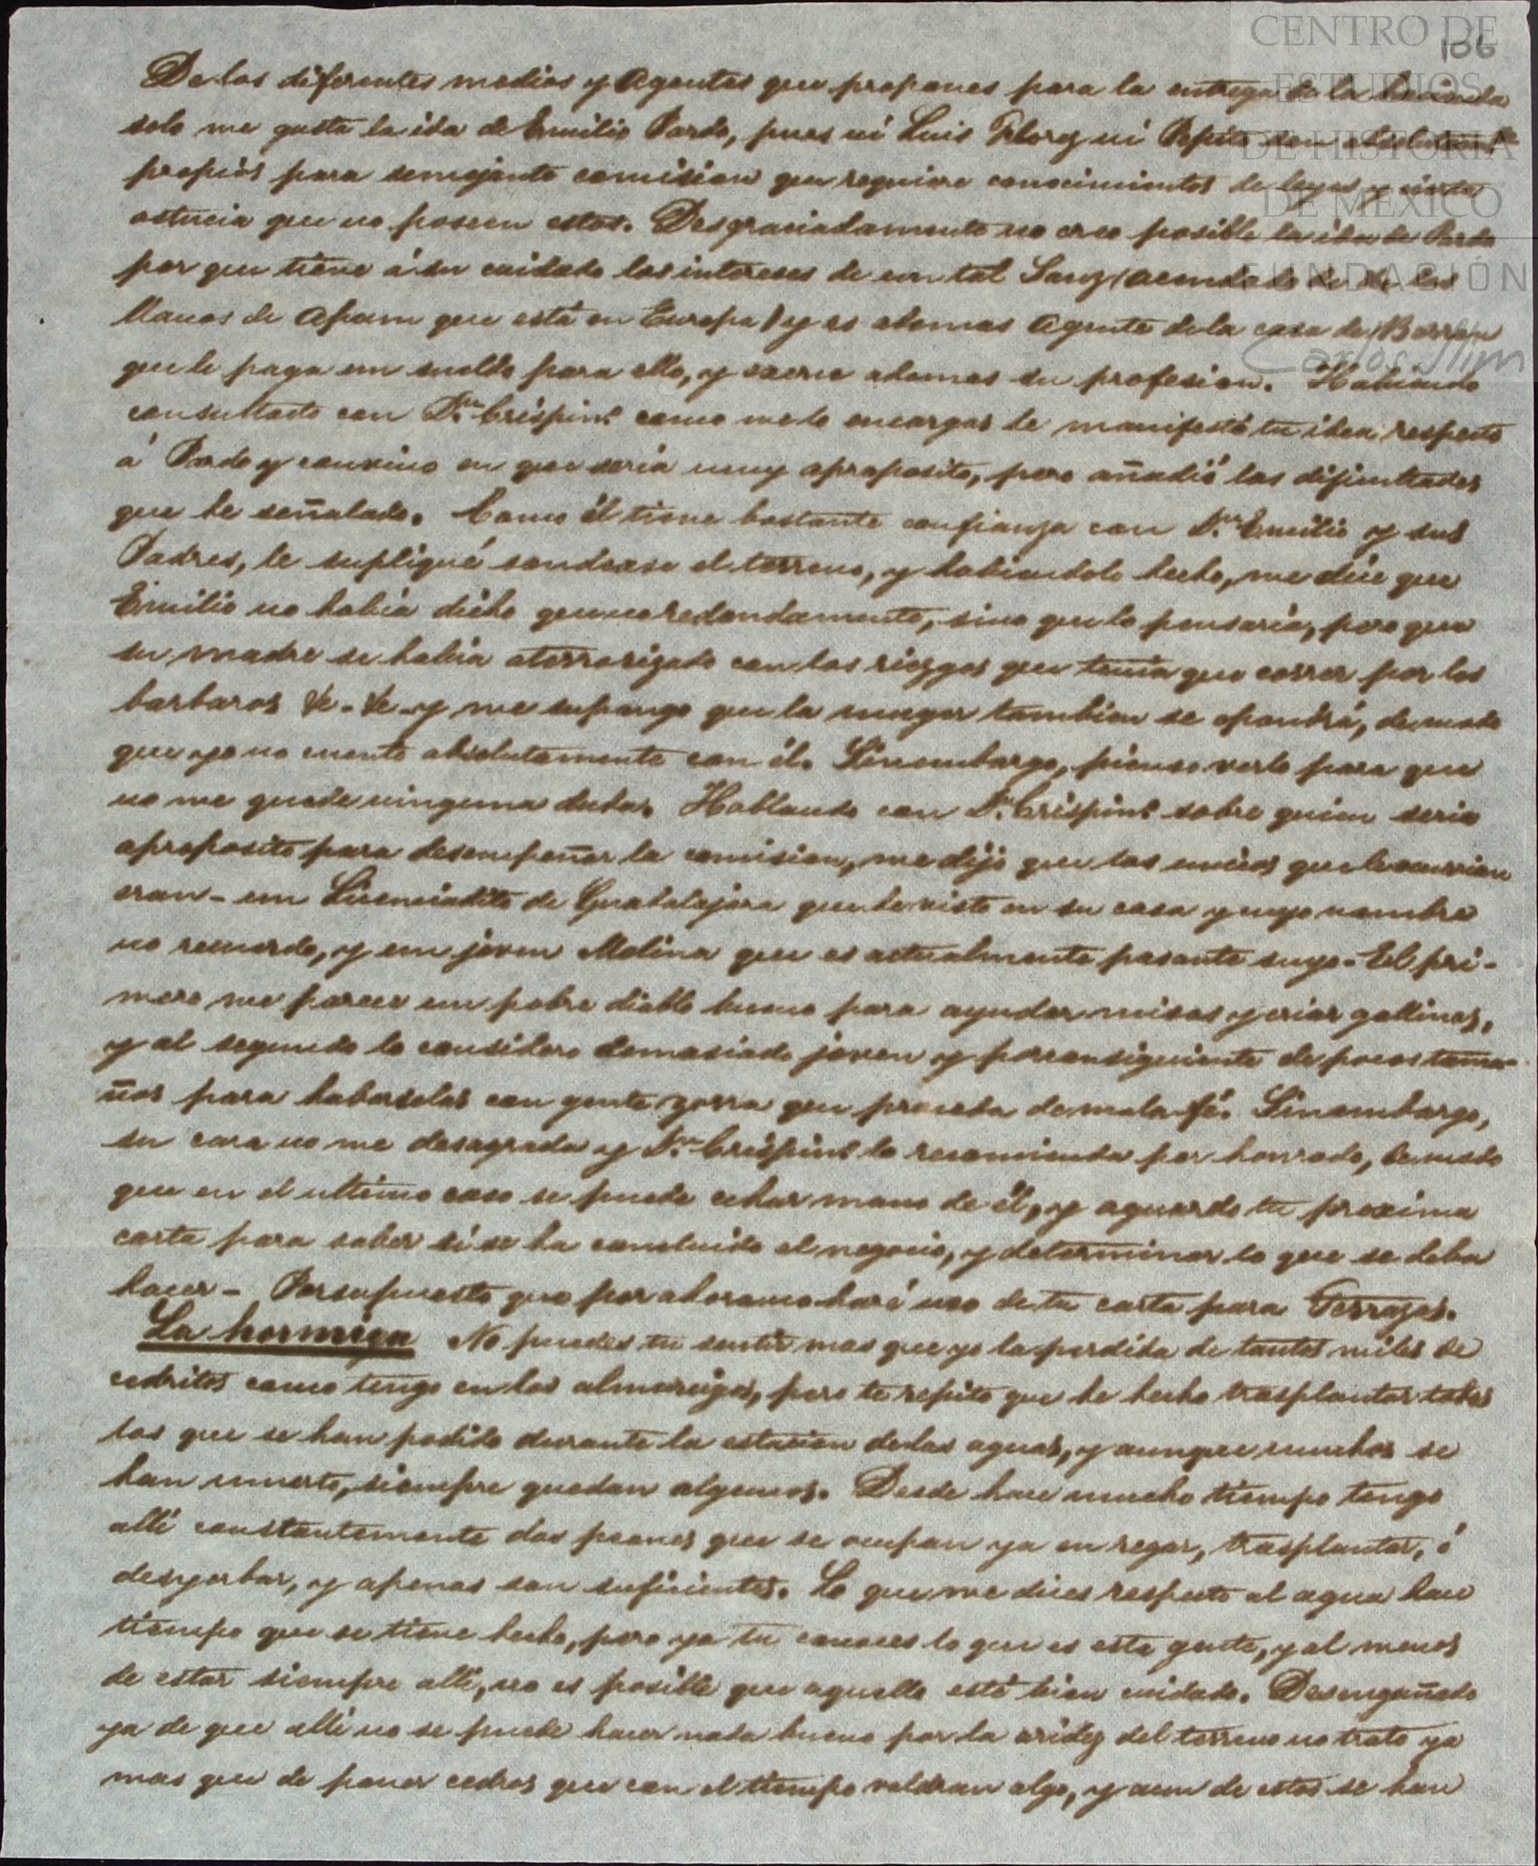 106
CENTRO DE
ESTUDIOS
DE HISTORIA
DE MEXICO
FUNDACIÓN
Carlos Slim
De los diferentes medios y Agentes que propones para la entrega de la
solo me gusta la ida de Emilio Pardo, pues ni Luis Florez ni Pepito son absolutamte
propios para semejante comision que requiere conocimientos de leyes y cierta
astucia que no poseen estos. Desgraciadamente no creo posible la ida de Pardo
por que tiene á su cuidado los intereses de un tal Sanz (acendado de los
llanos de Apam que está en Europa) y es ademas Agente de la casa de Barron
que le paga un sueldo para ello, y ejerce ademas su profesion. Habiendo
consultado con Dn. Crispino. como me lo encargas le manifesté tu idea respecto
á Pardo y convino en que seria muy aproposito, pero añadió las dificultades
que he señalado. Como él tiene bastante confianza con Dn. Emilio y sus
Padres, le supliqué sondease el terreno, y habiendolo hecho, me dice que
Emilio no habia dicho que no redondamente, sino que lo pensaria, pero que
su madre se habia aterrorizado con los riezgos que tenia que correr por los
barbaros &c. &c. y me supongo que la muger tambien se opondrá, de modo
que yo no cuento absolutamente con él. Sinembargo, pienso verlo para que
no me quede ninguna duda. Hablando con Dn. Crispino. sobre quien seria
aproposito para desempeñar la comision, me dijo que los unicos que le ocurrian
eran - un Licenciadito de Guadalajara que he visto en su casa y cuyo nombre
no recuerdo, y un joven Molina que es actualmente pasante suyo - El pri-
mero me parece un pobre diablo bueno para ayudar misas y criar gallinas,
y al segundo lo considero demasiado joven y por consiguiente de pocos tama-
ños para haberselas con gente zorra que proceda de mala fé. Sinembargo,
su cara no me desagrada y Dn. Crispino. lo recomienda por honrado, de modo
que en el ultimo caso se puede echar mano de él, y aguardo tu proxima
carta para saber si se ha concluido el negocio, y determinar lo que se deba
hacer - Por supuesto que por ahora no haré uso de tu carta para Terrazas.
La hormiga No puedes tu sentir mas que yo la perdida de tantos miles de
cedritos como tengo en los almacigos, pero te repito que he hecho trasplantar todos
los que se han podido durante la estacion de las aguas, y aunque muchos se
han muerto, siempre quedan algunos. Desde hace mucho tiempo tengo
allí constantemente dos peones que se ocupan ya en regar, trasplantar, ó
desyerbar, y apenas son suficientes. Lo que me dices respecto al agua hace
tiempo que se tiene hecho, pero ya tu conoces lo que es esta gente, y al menos
de estar siempre allí, no es posible que aquello esté bien cuidado. Desengañado
ya de que allí no se puede hacer nada bueno por la aridez del terreno no trato ya
mas que de poner cedros que con el tiempo valdran algo, y aun de estos se han